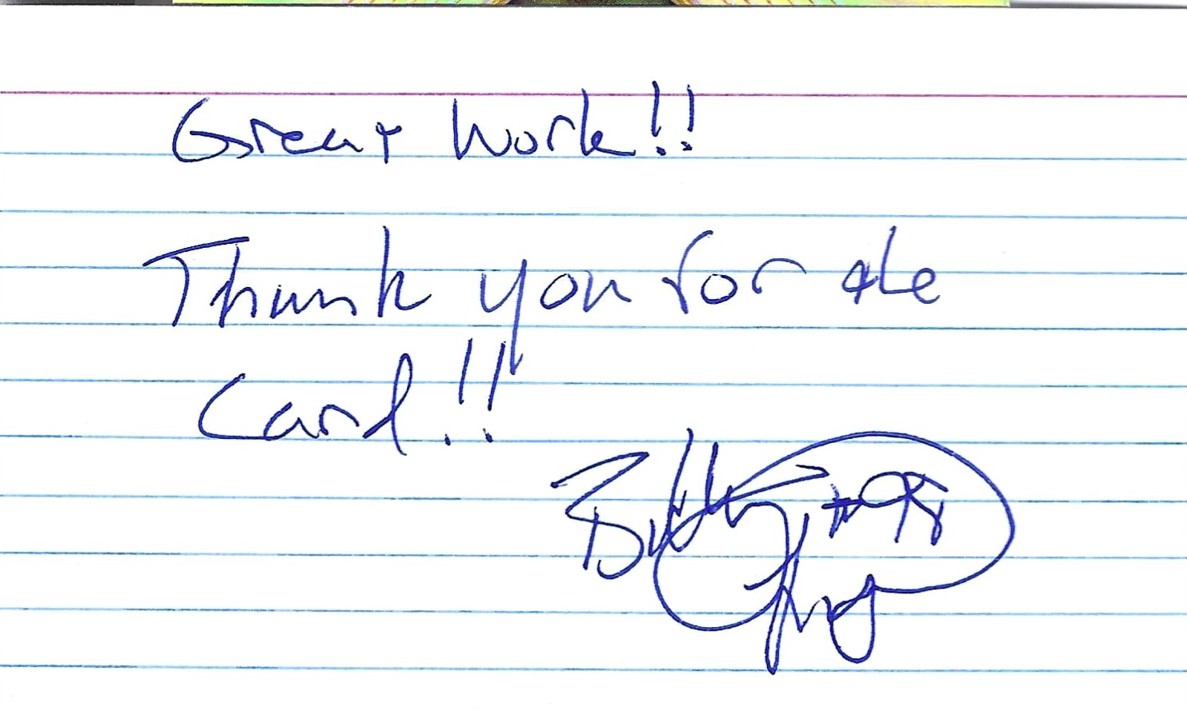 Great Work!!
Thank you for the
Card!!
#98